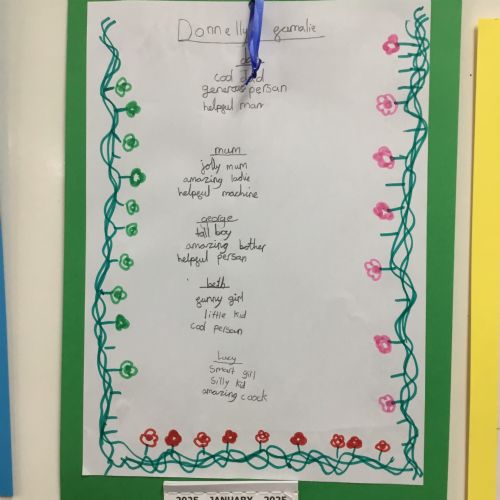 Donnelly gamalie
cool dad
generous persan
helpful man
mum
jolly mum
amazing ladie
helpful machine
george
tall boy
amazing bother
helpful persan
beth
gunny girl
little kid
cool persaun
Lucy
Smart girl
Silly kid
amazing coock
2025 JANUARY 2025